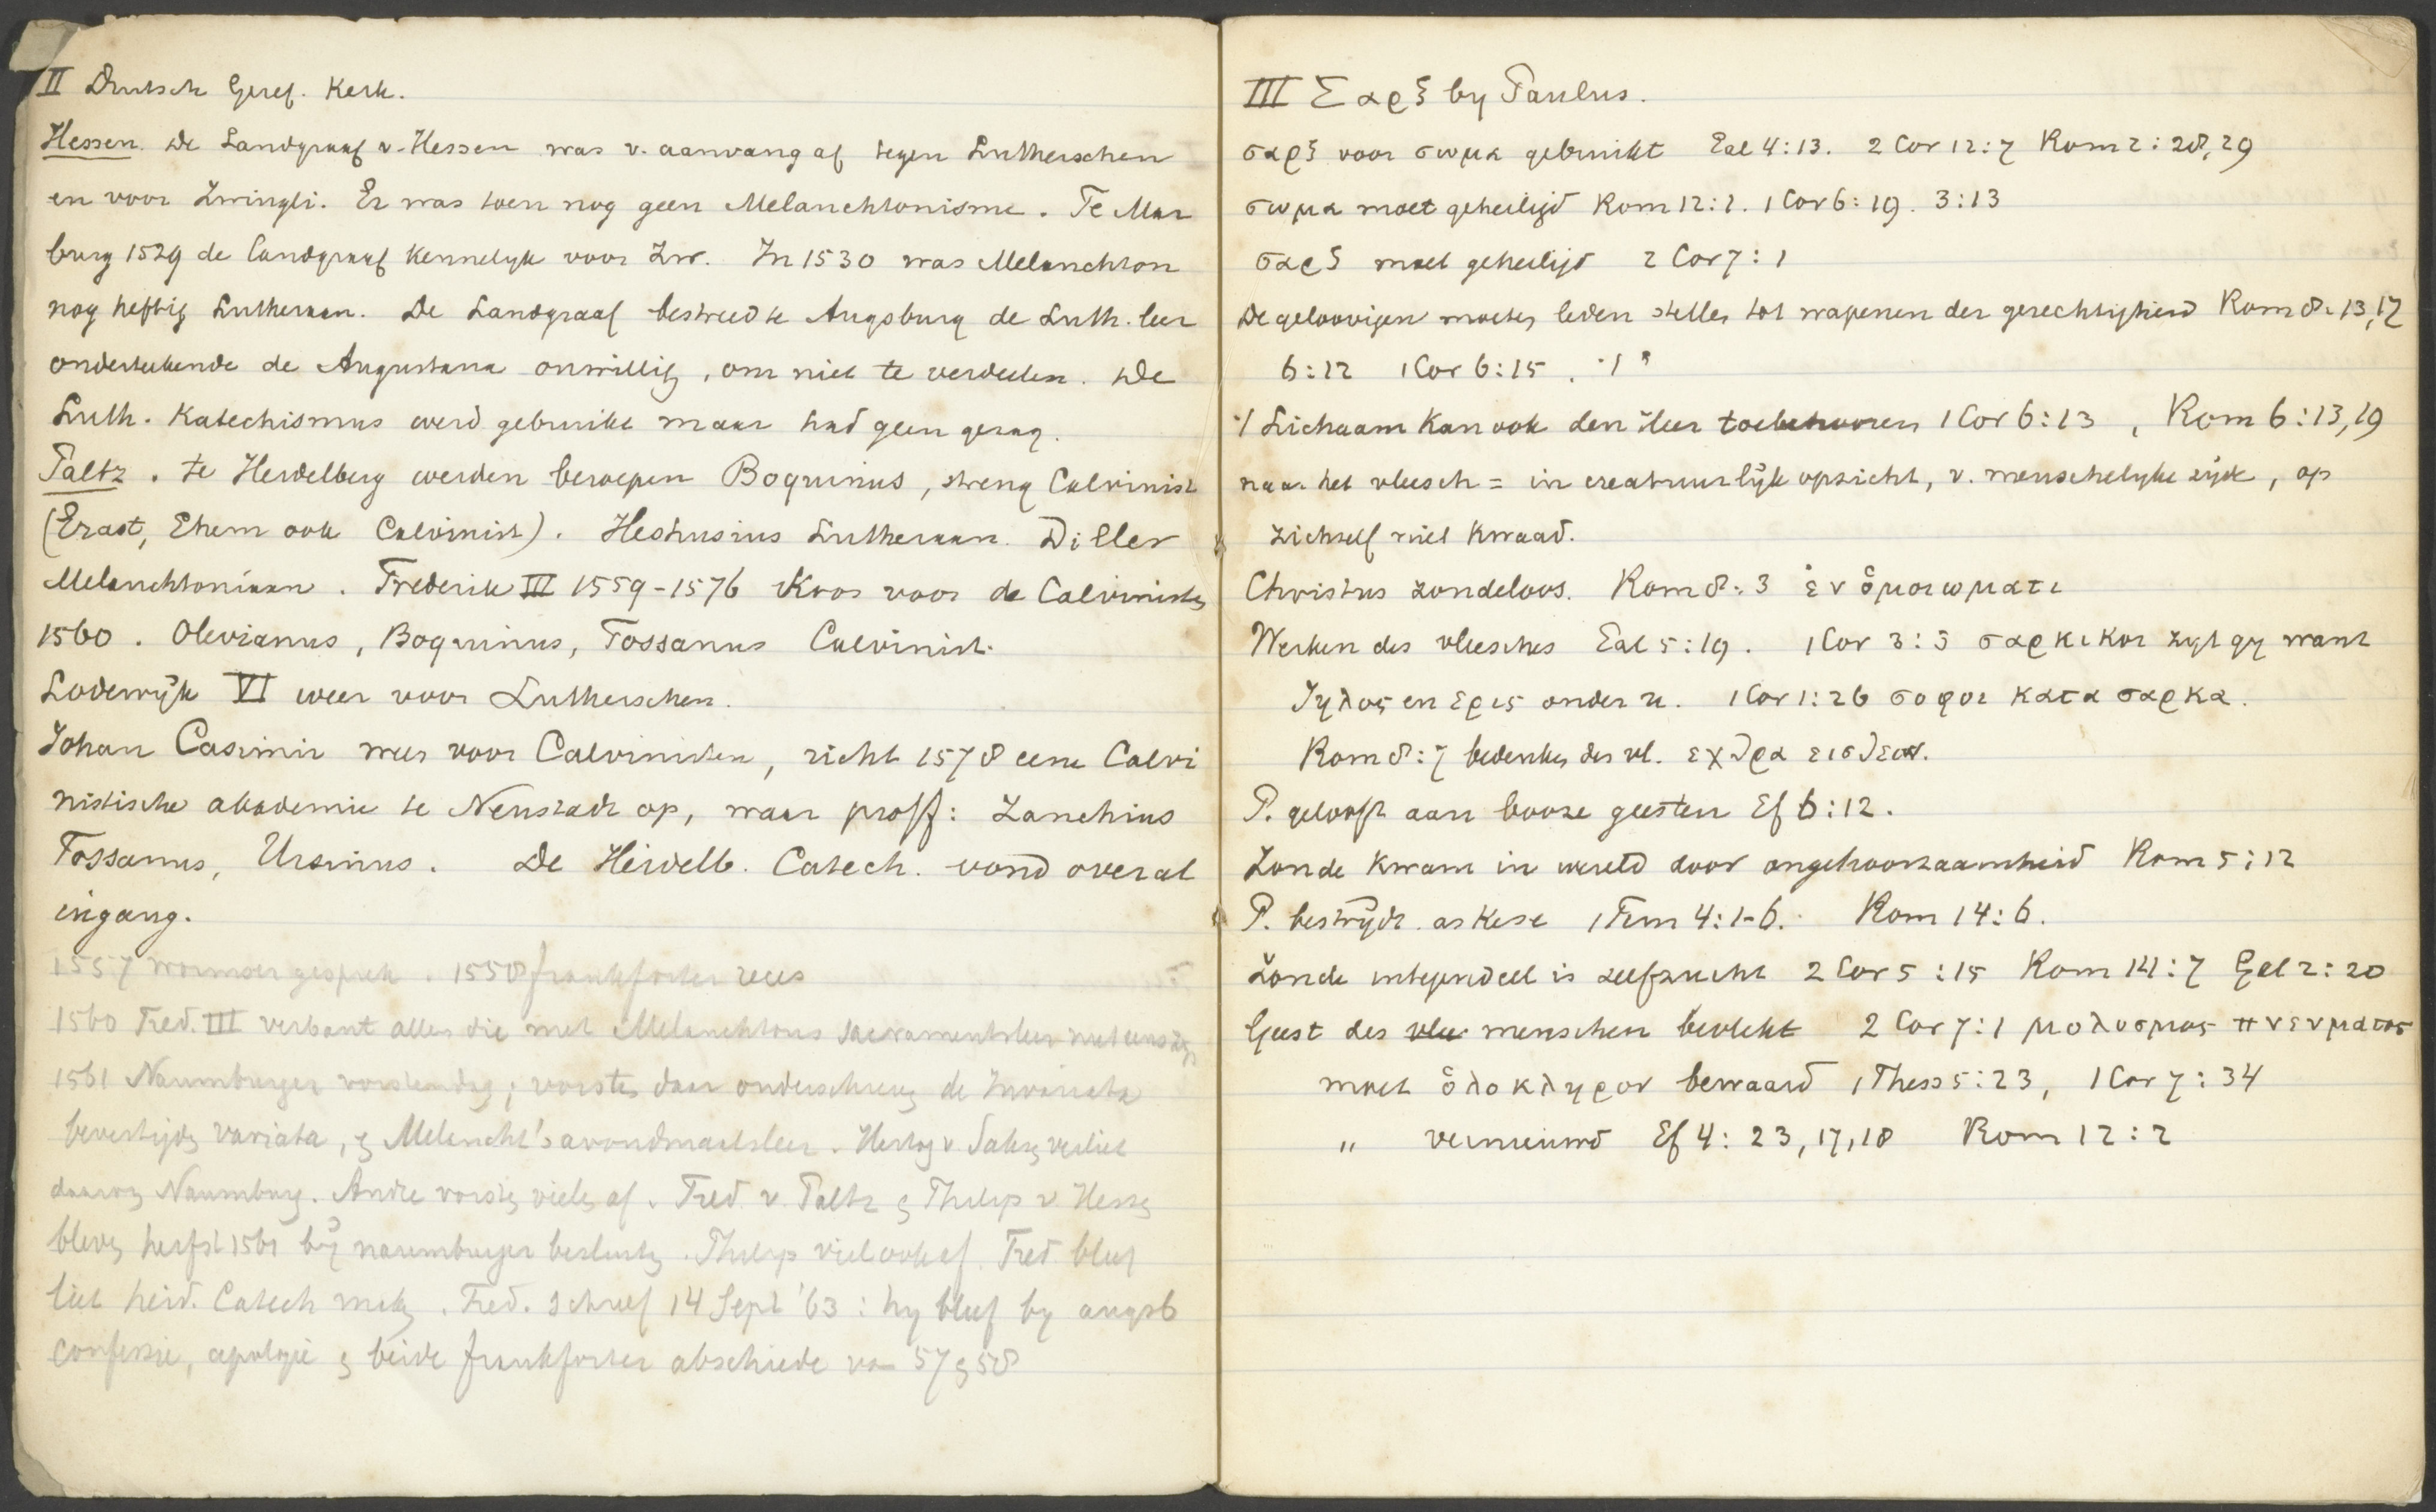 II Duitsch Geref. Kerk.
Hessen. De Landgraaf v. Hessen was v. aanvang af tegen Lutherschen
en voor Zwingli. Er was toen nog geen Melanchtonisme. Te Mar
burg 1529 de Landgraaf kennelijk voor Zw. In 1530 was Melanchton
nog heftig Lutheraan. De Landgraaf bestreed te Augsburg de Luth. leer
onderteekende de Augustana onwillig, om niet te verdeelen. De
Luth. Katechismus werd gebruikt maar had geen gezag.
Paltz. te Heidelberg werden beroepen Boquinus, streng Calvinist
(Erast, Ehem ook Calvinist). Heshusius Lutheraan. Diller
Melanchtoniaan. Frederik III 1559-1576 Koos voor de Calvinisten
1560. Olevianus, Boquinus, Tossanus Calvinist.
Lodewijk VI weer voor Lutherschen.
Johan Casimir weer voor Calvinisten, richt 1578 eene Calvi
nistische akademie te Neustadt op, waar proff: Zanchius
Tossanus, Ursinus. De Heidelb. Catech. vond overal
ingang.
1557 wormser gesprek. 1558 frankforter reces
1560 Fred. III verbant allen die met Melanchtons sacramentsleer niet eens zijn
1561 Naumburger vorstendag; vorsten daar onderschreven de Invariata
bevestigden variata, en Melancht's avondmaalsleer. Hertog v. Saksen verliet
daarom Naumburg. Andre vorsten vielen af. Fred. v. Paltz en Philip v. Hessen
bleven herfst 1561 bij naumburger besluiten. Philip viel ook af. Fred. bleef
liet heid. Catech maken. Fred. schreef 14 Sept '63: hy bleef by augsb
confessie, apologie en beide frankforter abschiede van 57 en 58
III Σαρξ by Paulus.
σαρξ voor σωμα gebruikt Gal 4:13. 2 Cor 12:7 Rom 2:28,29
σωμα moet geheiligd Rom 12:1. 1 Cor 6:19. 3:13
σαρξ moet geheiligd 2 Cor 7:1
De geloovigen moeten leden stellen tot wapenen der gerechtigheid Rom 8:13,12
6:12 1 Cor 6:15. ·/·
·/ Lichaam kan ook den Heer toebehooren 1 Cor 6:13, Rom 6:13,19
naar het vleesch = in creatuurlijk opzicht, v. menschelyke zijde, op
zichzelf niet kwaad.
Christus zondeloos. Rom 8:3 ἐν ὁμοιωματι
Werken des vleesches Gal 5:19. 1 Cor 3:3 σαρκικοι zyt gy want
ζηλος en ερις onder u. 1 Cor 1:26 σοφοι κατα σαρκα.
Rom 8:7 bedenken des vl. εχθρα εις θεον.
P. gelooft aan booze geesten Ef 6:12.
Zonde kwam in wereld door ongehoorzaamheid Rom 5:12
P. bestrijdt askese 1 Tim 4:1-6. Rom 14:6.
Zonde integendeel is zelfzucht 2 Cor 5:15 Rom 14:7 Gal 2:20
Geest des vlee menschen bevlekt 2 Cor 7:1 μολυσμος πνευματος
moet ὁλοκληρον bewaard 1 Thess 5:23, 1 Cor 7:34
" vernieuwd Ef 4:23,17,18 Rom 12:2